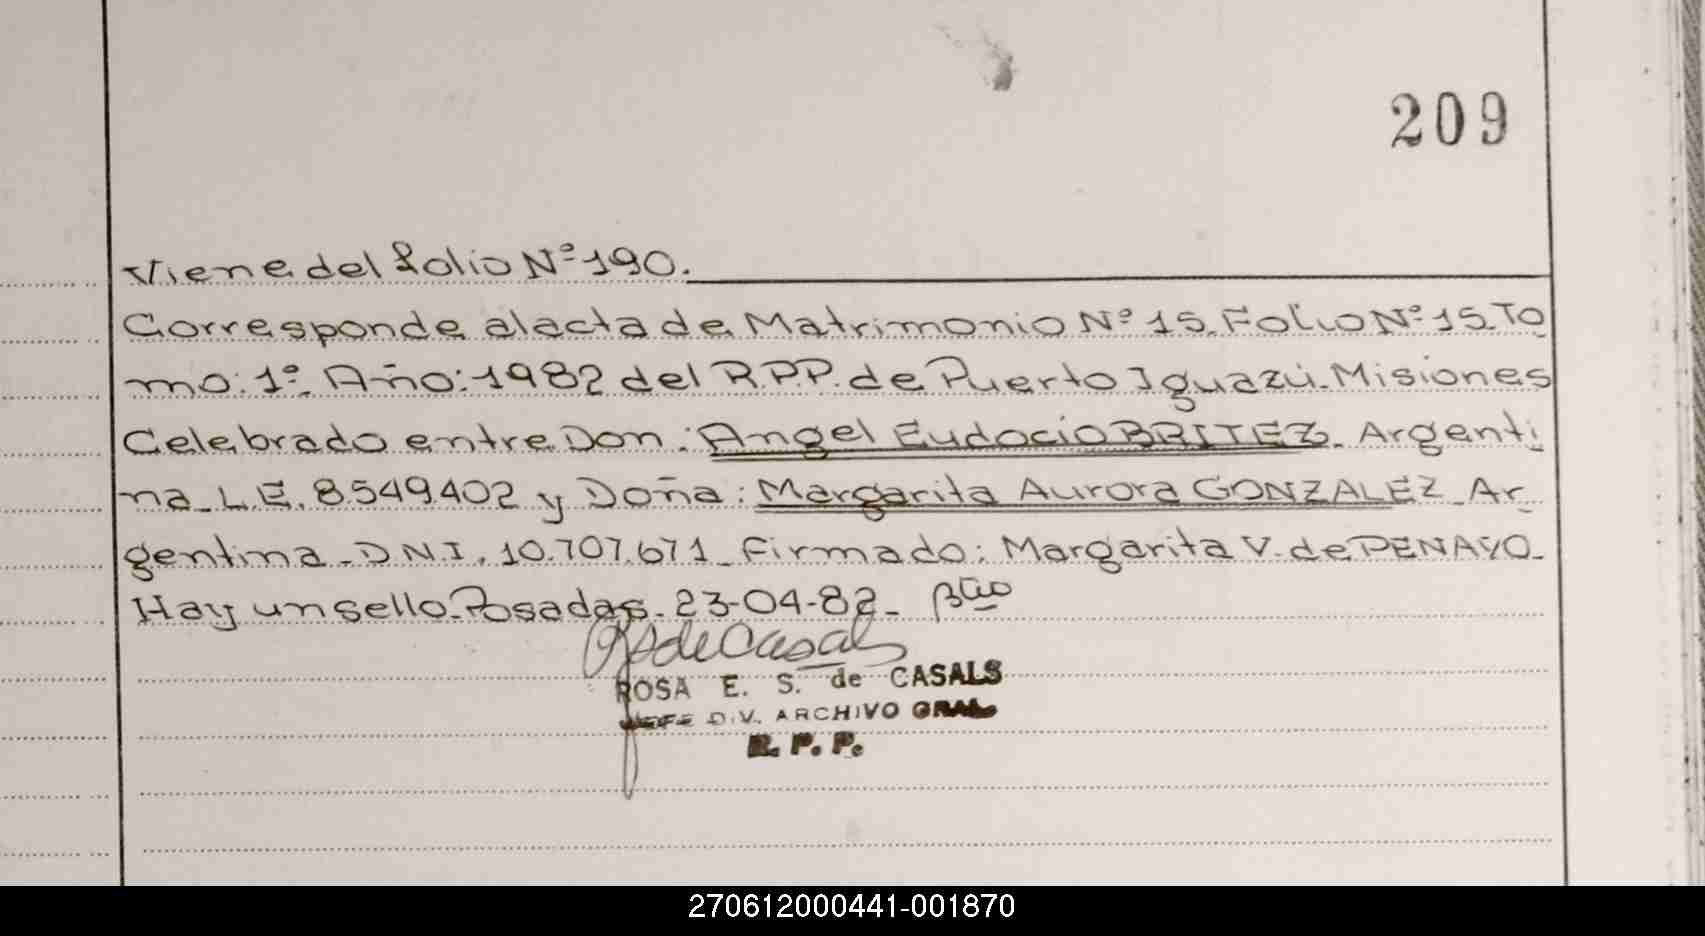 209
Viene del folio Nº 190.
Corresponde al acta de Matrimonio Nº 15. Folio Nº 15 To
mo: 1º. Año: 1982 del R.P.P. de Puerto Iguazú. Misiones
Celebrado entre Don: Angel Eudocio BRITEZ. Argenti
na. L.E. 8.549.402 y Doña: Margarita Aurora GONZALEZ. Ar
gentina. D.N.I. 10.707.671. Firmado: Margarita V. de PENAYO.
Hay un sello. Posadas. 23-04-82.
de Casals
ROSA E. S. de CASALS
JEFE DIV. ARCHIVO GRAL.
R. P. P.
270612000441-001870